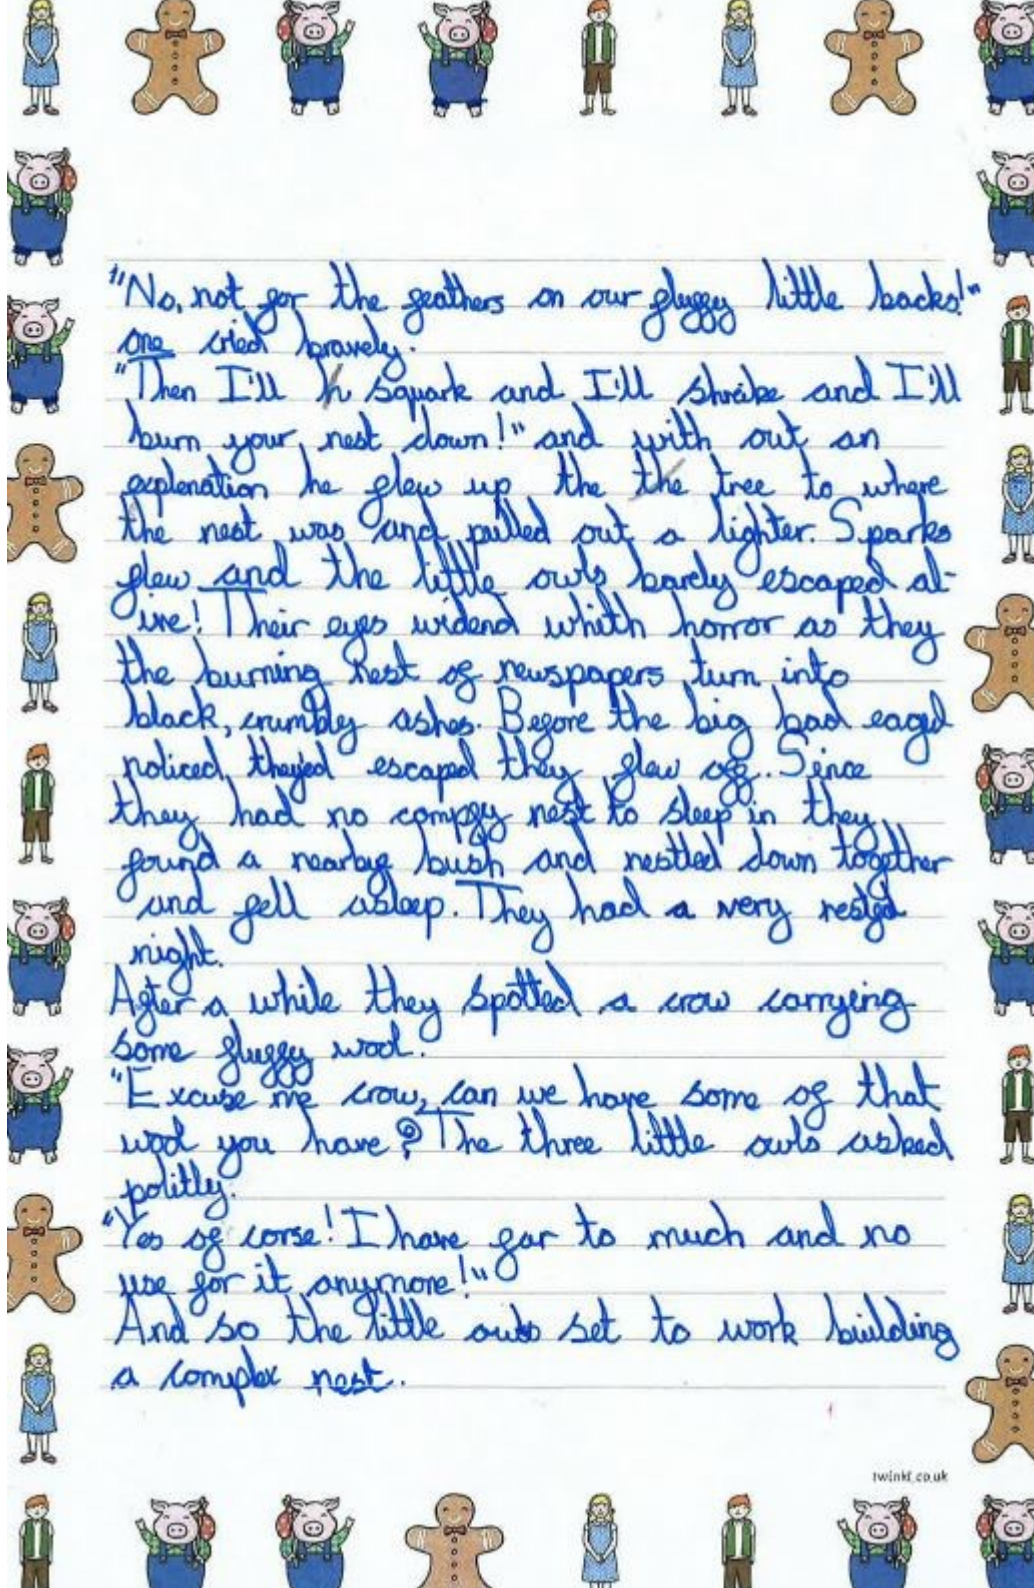 "No, not for the feathers on our fluffy little backs!"
one cried bravely.
"Then I'll h squark and I'll shrike and I'll
burn your nest down!" and with out an
explenation he flew up the the tree to where
the nest was and pulled out a lighter. Sparks
flew and the little owls barely escaped al-
ive! Their eyes widend whith horror as they
the burning nest of newspapers turn into
black, crumbly ashes. Before the big bad eagel
noticed theyed escaped they flew off. Since
they had no compfy nest to sleep in they
found a nearbye bush and nestled down together
and fell asleep. They had a very
night.
After a while they spotted a crow carrying
some fluffy wool.
"Excuse me crow, can we have some of that
wool you have? The three little owls asked
politly.
"Yes of corse! I have far to much and no
use for it anymore!"
And so the little owls set to work building
a complex nest.
twinkl.co.uk